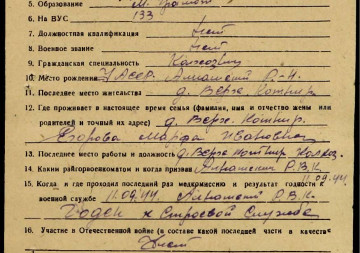 5. Образование М. Грамот
6. На ВУС 133
7. Должностная квалификация нет
8. Военное звание нет
9. Гражданская специальность Колхозник
10. Место рождения УАССР. Алнашский Р-Н.
11. Последнее место жительства д. Верх. Котныр.
12. Где проживает в настоящее время семья (фамилия, имя и отчество жены или
родителей и точный их адрес) д. Верх. Котныр.
Егорова Марфа Ивановна
13. Последнее место работы и должность д. Верх Котныр Колхоз.
14. Каким райгорвоенкоматом и когда призван Алнашским Р.В.К.
11.09.44.
15. Когда и где проходил последний раз медкомиссию и результат годности к
военной службе 11.09.44. Алнашский Р.В.К.
Годен к Строевой Службе
16. Участие в Отечественной войне (в составе какой последней части в качестве
Нет